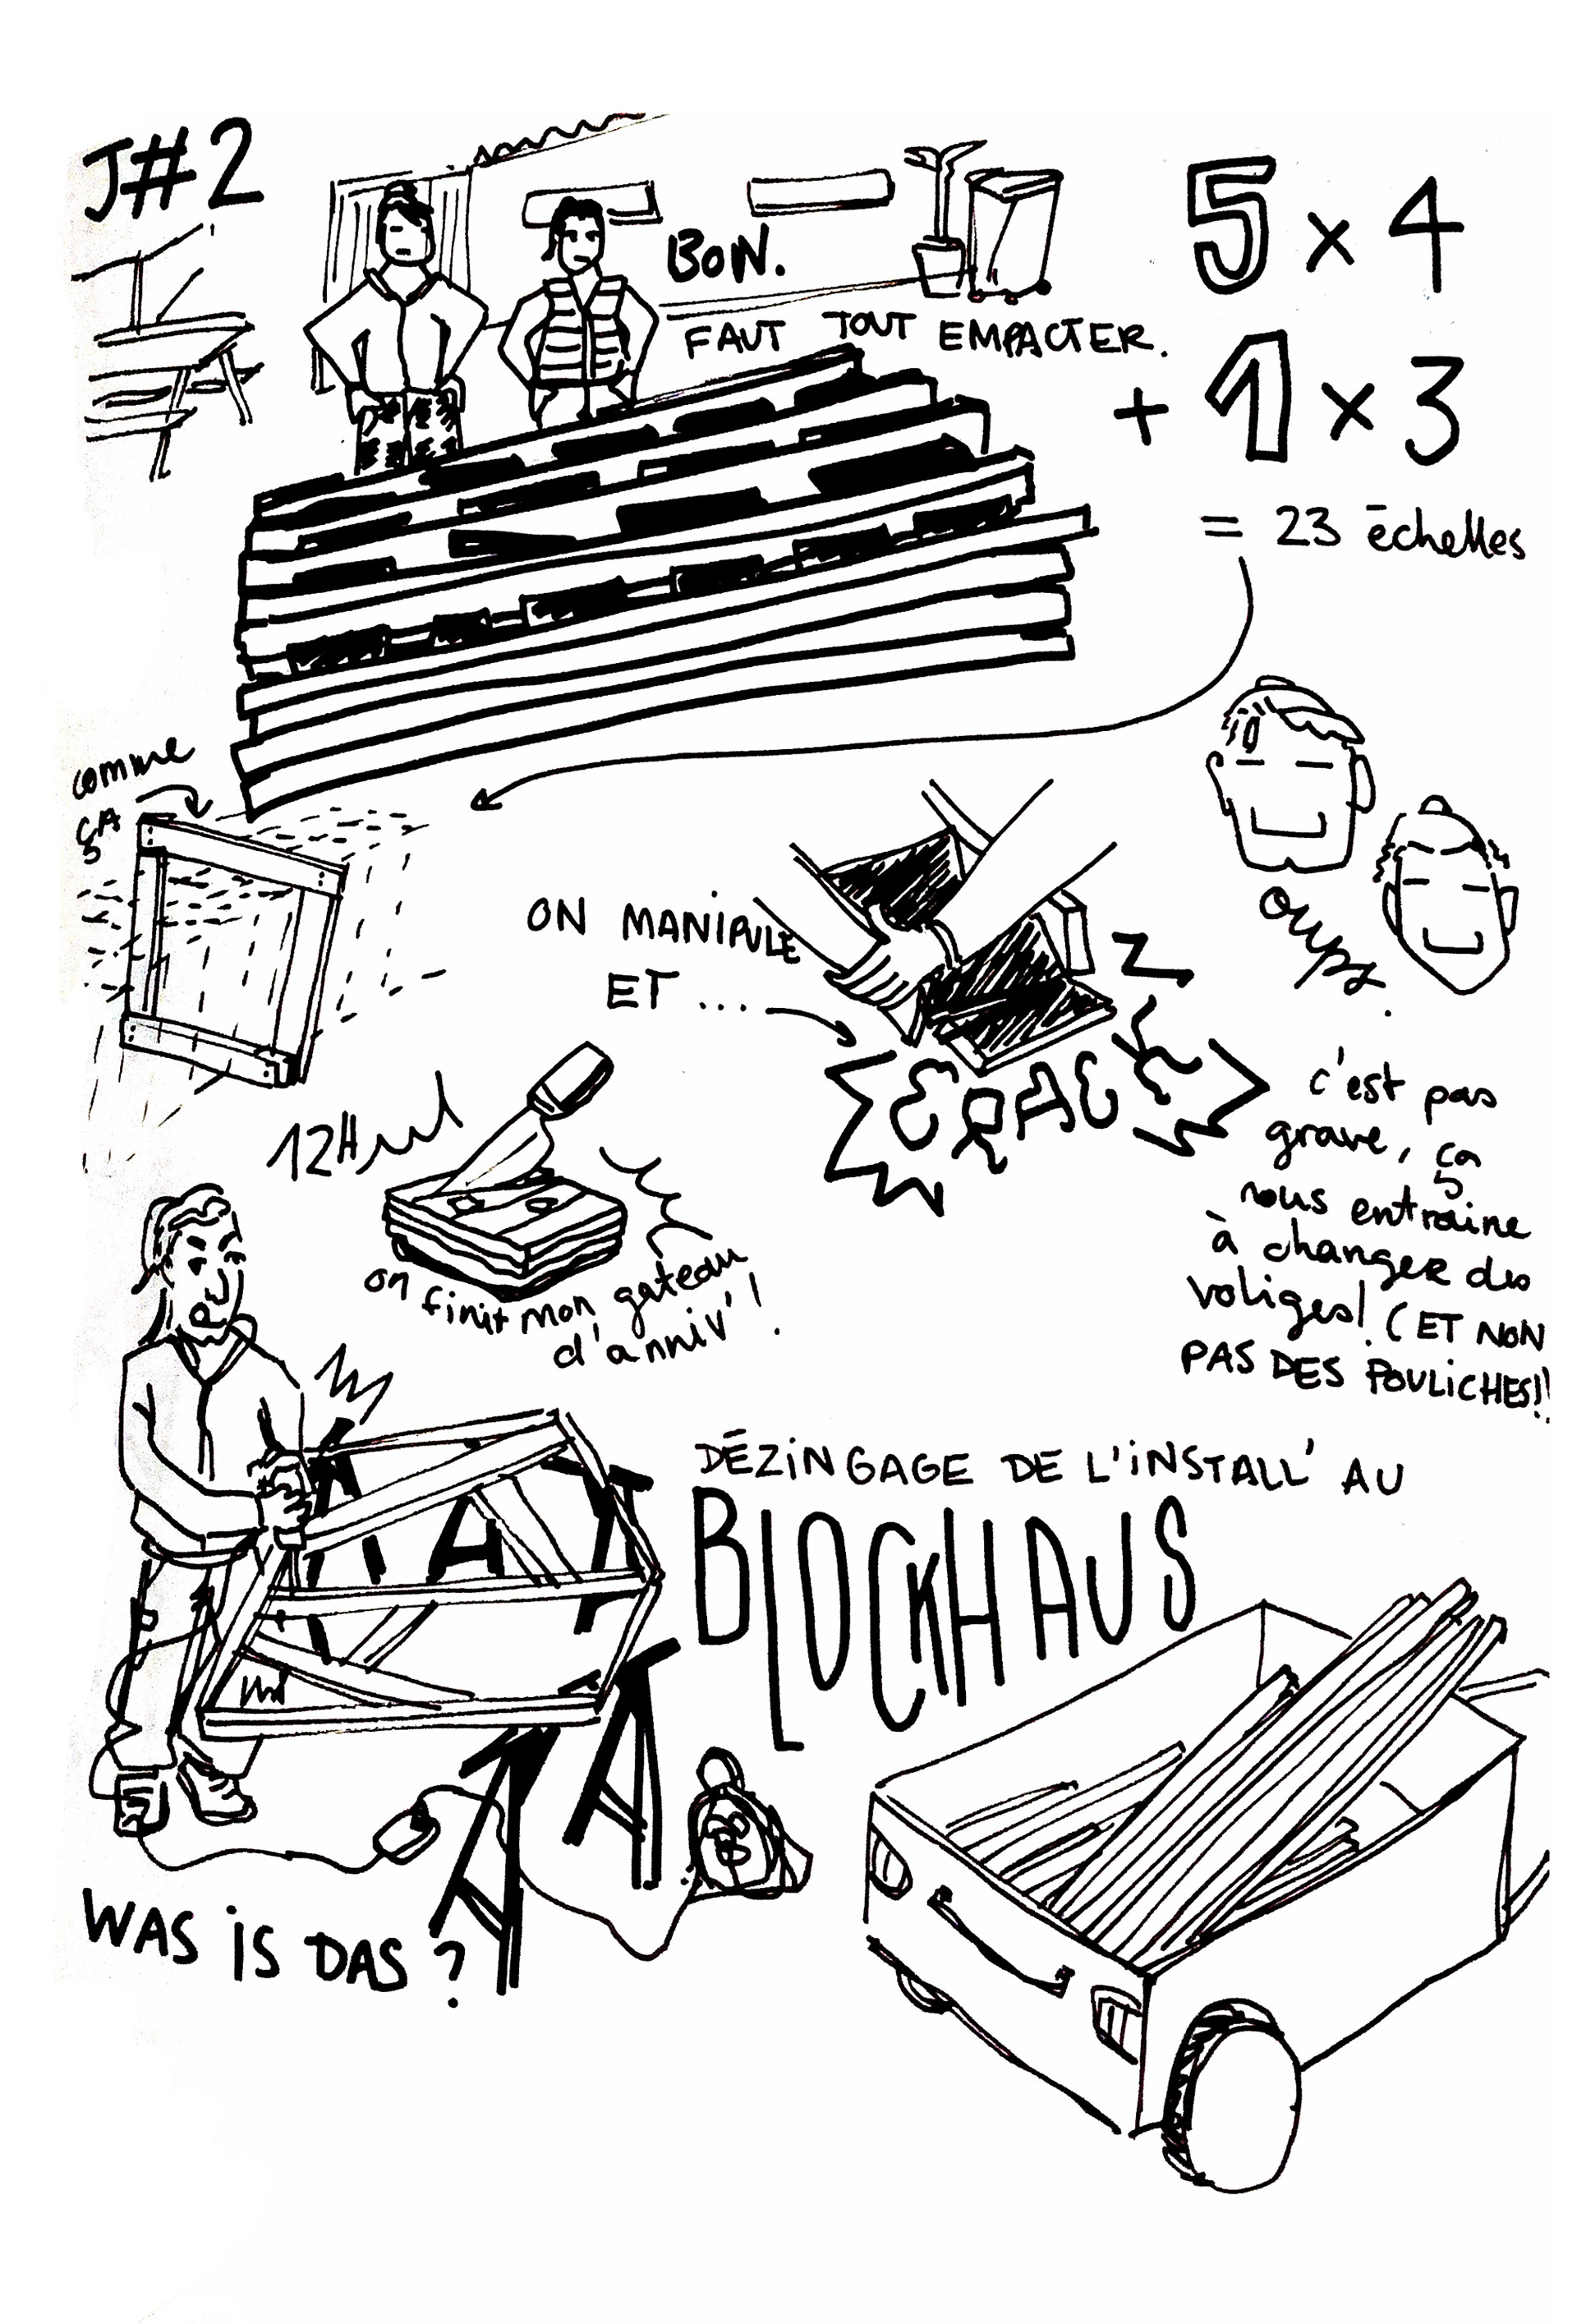 J#2
BON.
FAUT TOUT EMPACTER.
5 x 4
+ 1 x 3
= 23 échelles
comme
ça
ON MANIPULE
ET ...
CRACK
oups.
c'est pas
grave, ça
nous entraine
à changer des
voliges! (ET NON
PAS DES POULICHES!!
12H
on finit mon gateau
d'anniv'!
DÉZINGAGE DE L'INSTALL' AU
BLOCKHAUS
WAS IS DAS ?